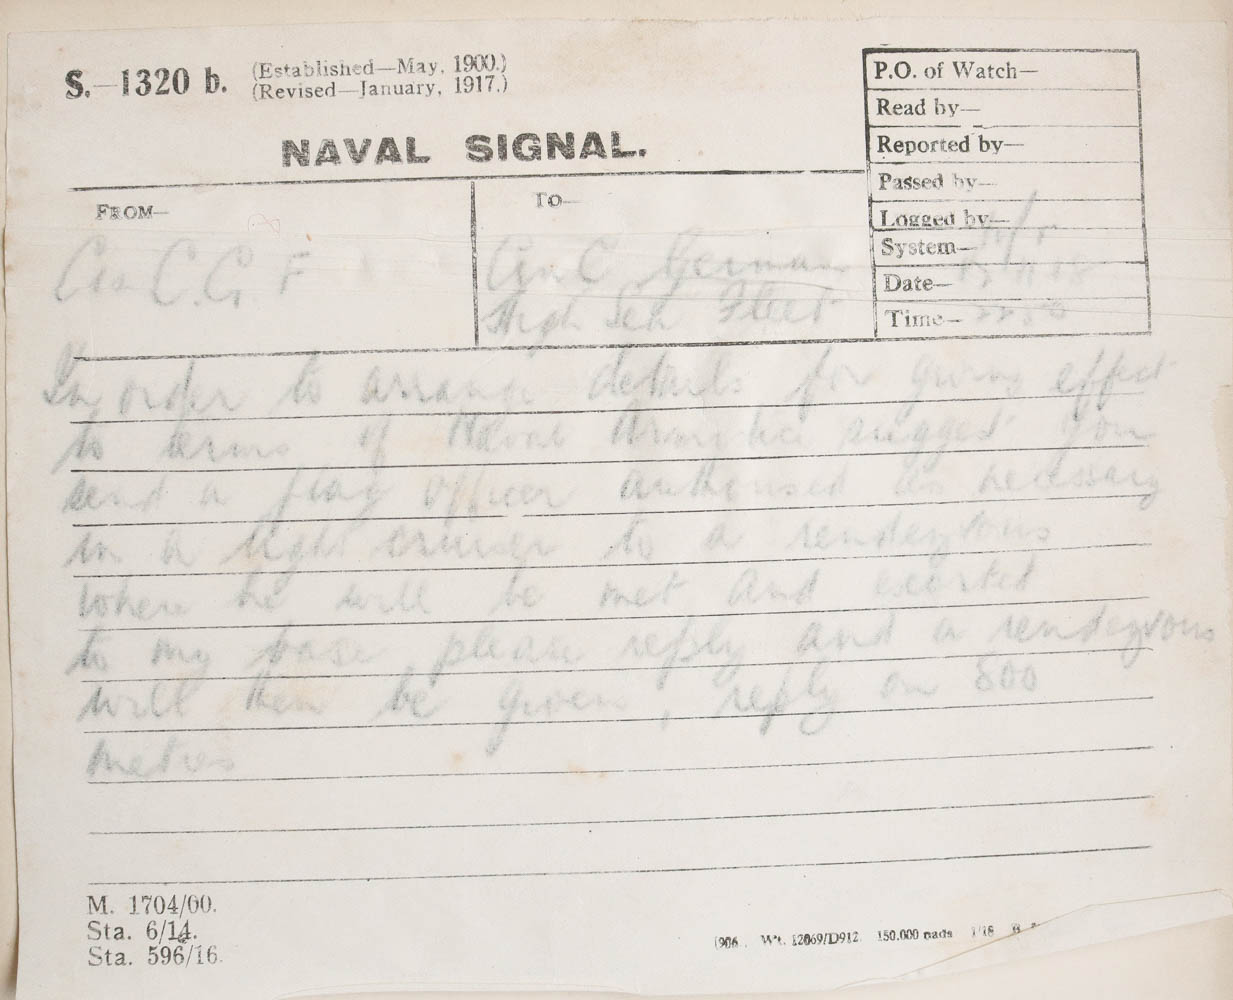 S.—1320 b. (Established—May, 1900.)
(Revised—January, 1917.)
NAVAL SIGNAL.
P.O. of Watch—
Read by—
Reported by—
Passed by—
Logged by—
System—
Date—
Time—
FROM—
C in C.G.F
TO—
C in C German
High Sea Fleet
In order to arrange details for giving effect
to terms of Naval Armistice suggest you
send a flag officer authorised as necessary
in a light cruiser to a rendezvous
where he will be met and escorted
to my base, please reply and a rendezvous
will then be given, reply on 800
metres
M. 1704/00.
Sta. 6/14.
Sta. 596/16.
Wt. 12069/D912. 150,000 pads